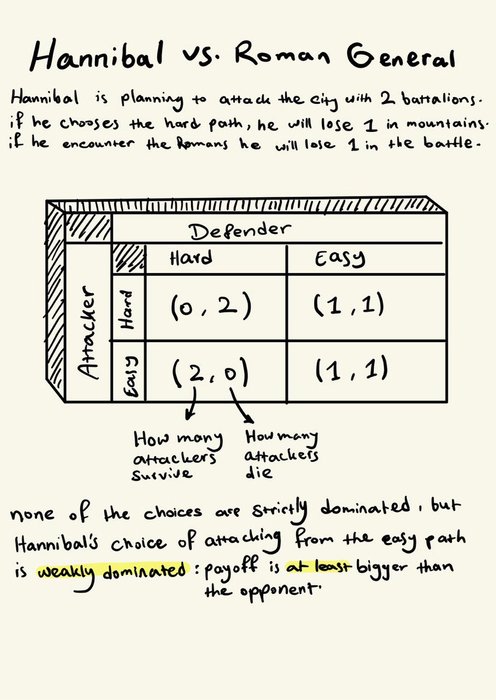 Hannibal vs. Roman General
Hannibal is planning to attack the city with 2 battalions.
if he chooses the hard path, he will lose 1 in mountains.
if he encounter the Romans he will lose 1 in the battle.
Defender
Hard Easy
Attacker
Hard (0, 2) (1, 1)
Easy (2, 0) (1, 1)
How many How many
attackers attackers
survive die
none of the choices are strictly dominated, but
Hannibal's choice of attacking from the easy path
is weakly dominated : payoff is at least bigger than
the opponent.